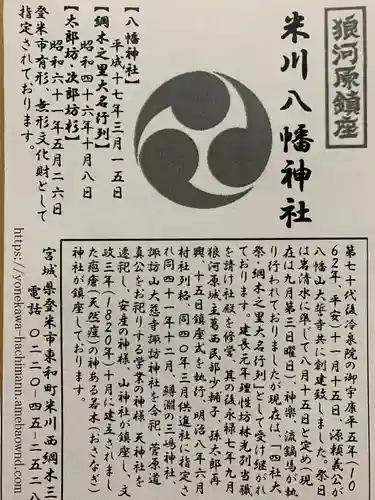 狼河原鎮座
米川八幡神社
【八幡神社】
平成十七年三月一五日
【綱木之里大名行列】
昭和四十六年十月八日
【太郎坊・次郎坊杉】
昭和六十一年五月二六日
登米市有形、無形文化財として
指定されております。
第七十代後冷泉院の御宇康平五年(10
62年、平安)十一月十五日、源頼義公が
八幡山大誓寺に共に創建致しました。祭日
は岩清水に準じて八月十五日と定め(現
在は九月第三日曜日)、神楽、流鏑馬が執
り行われておりましたが現在は、「四社大
祭・綱木之里大名行列」として受け継がれ
ております。建長元年理性坊林光別当職
を請け社殿を修営、其の後永禄七年九月
狼河原城主葛西民部少輔子、孫太郎再
興、十五日鎮座式を執行、明治八年六月
村社列格、同四〇年三月供進社に指定さ
れ同四十一年十二月、鱒淵の三嶋神社
諏訪山大慈寺諏訪神社を合祀、菅原道
真公をお祀りする学業の神様、天神社を
遷祀し、安産の神様、山神社が鎮座し、文
政三年(1820年)十月に建立されまし
た疱瘡(天然痘)の神ある若木(おさなぎ)
神社が鎮座しております。
宮城県登米市東和町米川西綱木三
電話 〇二二〇-四五-二五二八
https://yonekawa-hachimann.amebaownd.com